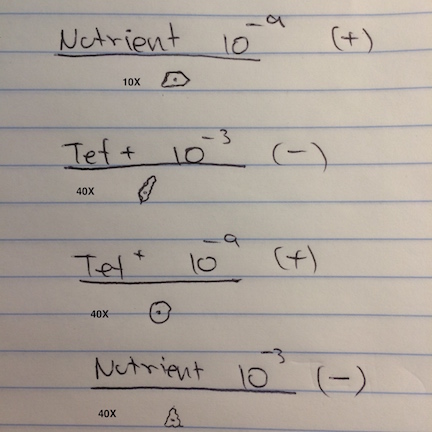 Nutrient 10⁻⁹ (+)
10X
Tet + 10⁻³ (-)
40X
Tet⁺ 10⁻⁹ (+)
40X
Nutrient 10⁻³ (-)
40X